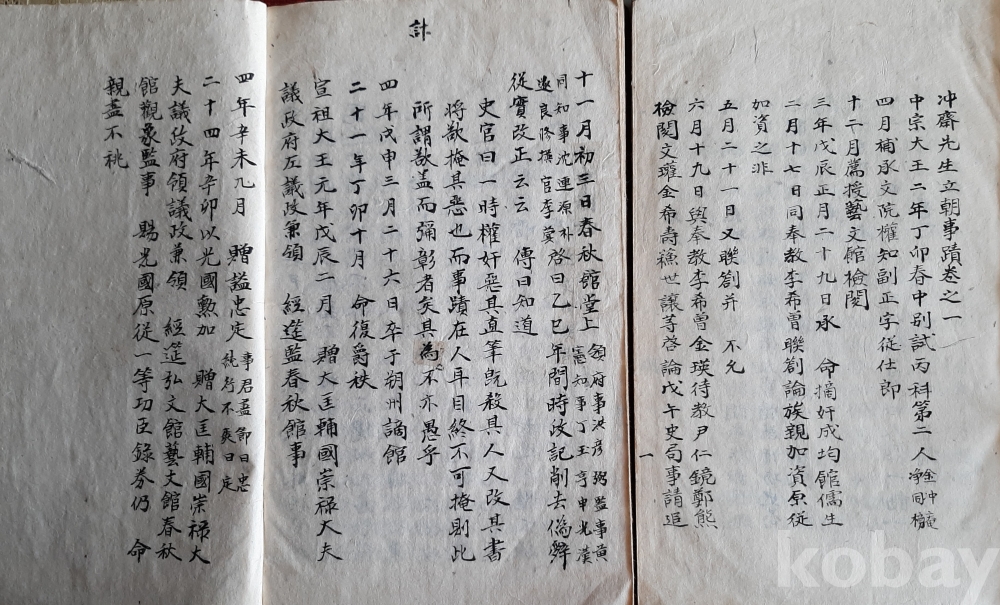 冲齋先生立朝事蹟卷之一
中宗大王二年丁卯春中別試丙科第二人 金冲 净同榜
四月補承文院權知副正字從仕郎
十二月薦授藝文館檢閱
三年戊辰正月二十九日承 命摘奸成均館儒生
二月十七日同奉教李希曾聯劄論族親加資原從
加資之非
五月二十一日又聯劄并 不允
六月十九日與奉教李希曾金瑛待教尹仁鏡鄭熊
檢閱文瓘金希壽蘇世讓等啓論戊午史局事請追
一
計
十一月初三日春秋館堂上 領府事洪彦弼監事黃
憲知事丁玉亨申光漢
同知事沈連源朴
遂良修撰官李蓂 啓曰乙巳年間時政記削去僞辭
從實改正云云 傳曰知道
史官曰一時權奸惡其直筆旣殺其人又改其書
將欲掩其惡也而事蹟在人耳目終不可掩則此
所謂欲盖而彌彰者矣其為不亦愚乎
四年戊申三月二十六日卒于朔州謫館
二十一年丁卯十月 命復爵秩
宣祖大王元年戊辰二月 贈大匡輔國崇祿大夫
議政府左議政兼領 經筵監春秋館事
四年辛未九月 贈謚忠定 事君盡節曰忠
純行不爽曰定
二十四年辛卯以光國勳加 贈大匡輔國崇祿大
夫議政府領議政兼領 經筵弘文館藝文館春秋
館觀象監事 賜光國原從一等功臣錄券仍 命
親盡不祧
kobay